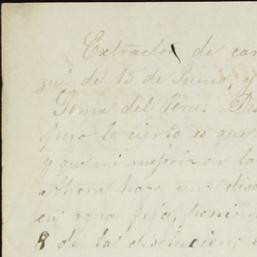 Extractos de car
qui de 15 de Junio, y
Goma del Peru. Des
pero lo cierto es que
y que mi mejoria en la
Ahora hago una diso
en agua fria, ponien
8 de la disolucion,